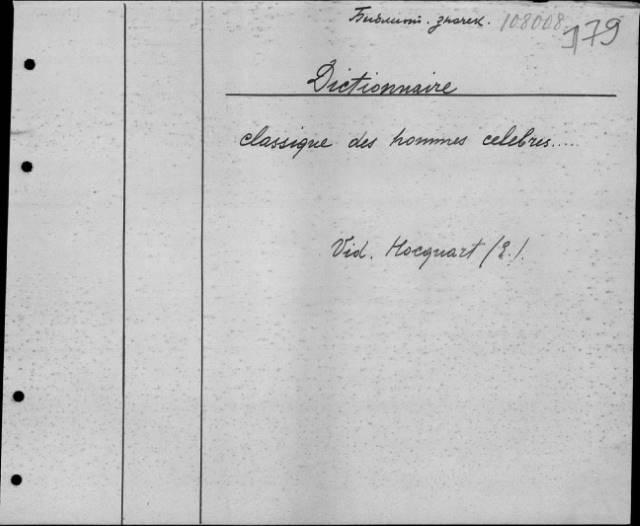 Библиот. значек. 108008
179
Dictionnaire
classique des hommes celebres.....
Vid. Hocquart /E./.